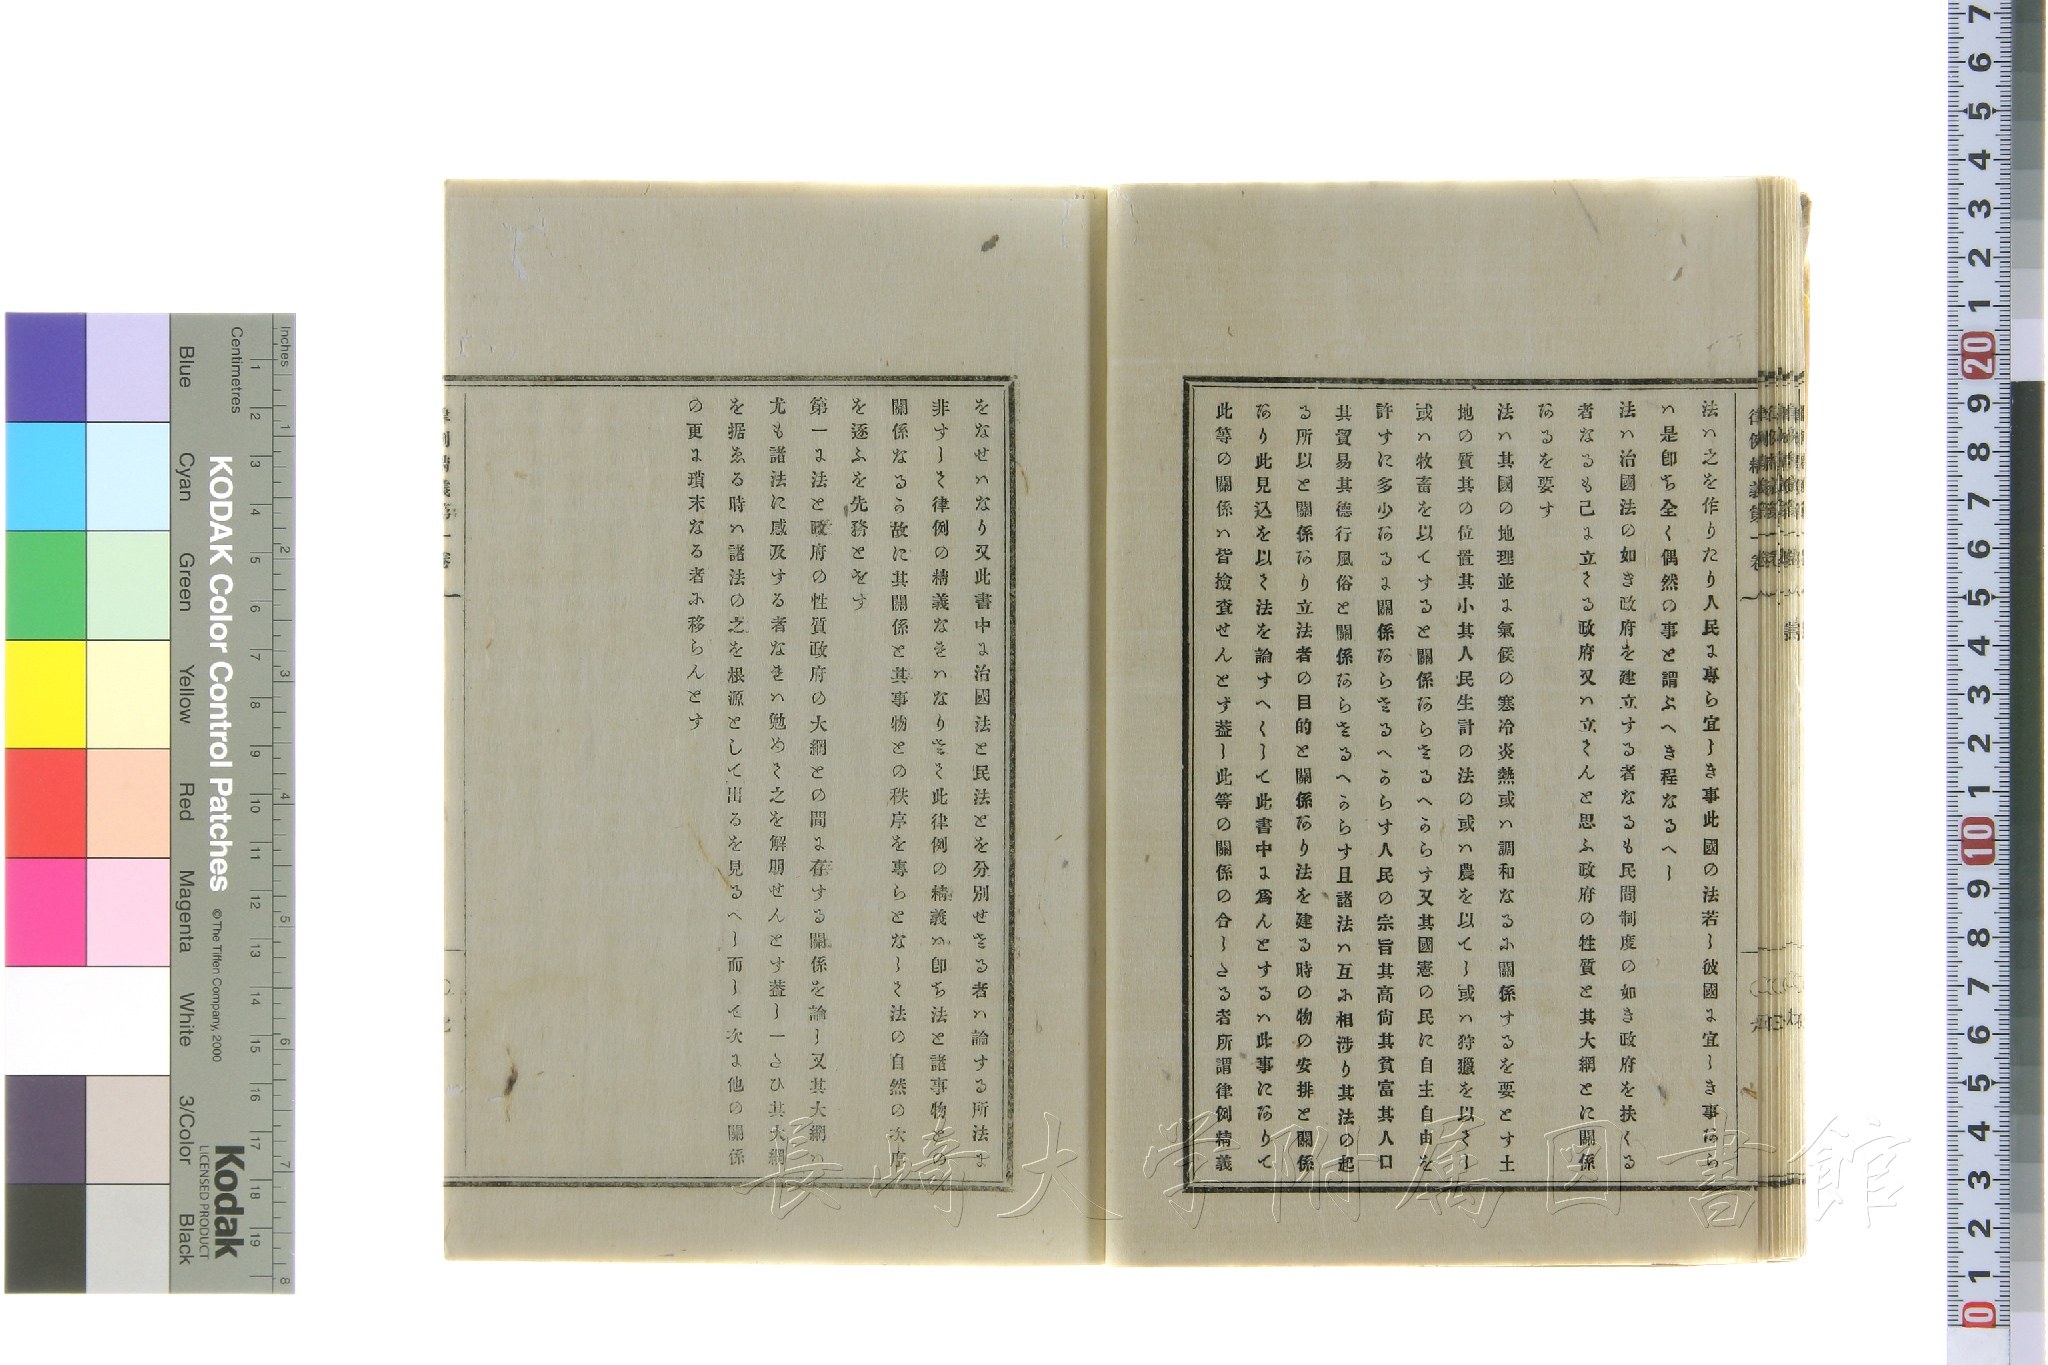 法ハ之を作りたり人民に專ら宜しき事此國の法若し彼國に宜しき事あら
ハ是卽ち全く偶然の事と謂ふへき程なるへし
法ハ治國法の如き政府を建立する者なるも民間制度の如き政府を扶くる
者なるも己に立てる政府又ハ立てんと思ふ政府の性質と其大綱とに關係
あるを要す
法ハ其國の地理並に氣候の寒冷炎熱或ハ調和なるに關係するを要とす土
地の質其の位置其小其人民生計の法の或ハ農を以てし或ハ狩獵を以てし
或ハ牧畜を以てすると關係あらさるへからす又其國憲の民に自主自由を
許すに多少あるに關係あらさるへからす人民の宗旨其高尙其貧富其人口
其貿易其德行風俗と關係あらさるへからす且諸法ハ互に相涉り其法の起
る所以と關係あり立法者の目的と關係あり法を建る時の物の安排と關係
あり此見込を以て法を論すへくして此書中に爲んとするハ此事にありて
此等の關係ハ皆撿査せんとす蓋し此等の關係の合したる者所謂律例精義
をなせハなり又此書中に治國法と民法とを分別せさる者ハ論する所法に
非すして律例の精義なれハなりさて此律例の精義ハ卽ち法と諸事物との
關係なるか故に其關係と其事物との秩序を專らとなして法の自然の次序
を逐ふを先務とせす
第一に法と政府の性質政府の大綱との間に存する關係を論し又其大綱ハ
尤も諸法に感及する者なれハ勉めて之を解明せんとす蓋し一たひ其大綱
を据ゑる時ハ諸法の之を根源として出るを見るへし而して次に他の關係
の更に瑣末なる者に移らんとす
律例精義第一卷
長崎大学附属図書館
KODAK Color Control Patches
© The Tiffen Company, 2000
Kodak
LICENSED PRODUCT
Inches
Centimetres
Blue
Cyan
Green
Yellow
Red
Magenta
White
3/Color
Black